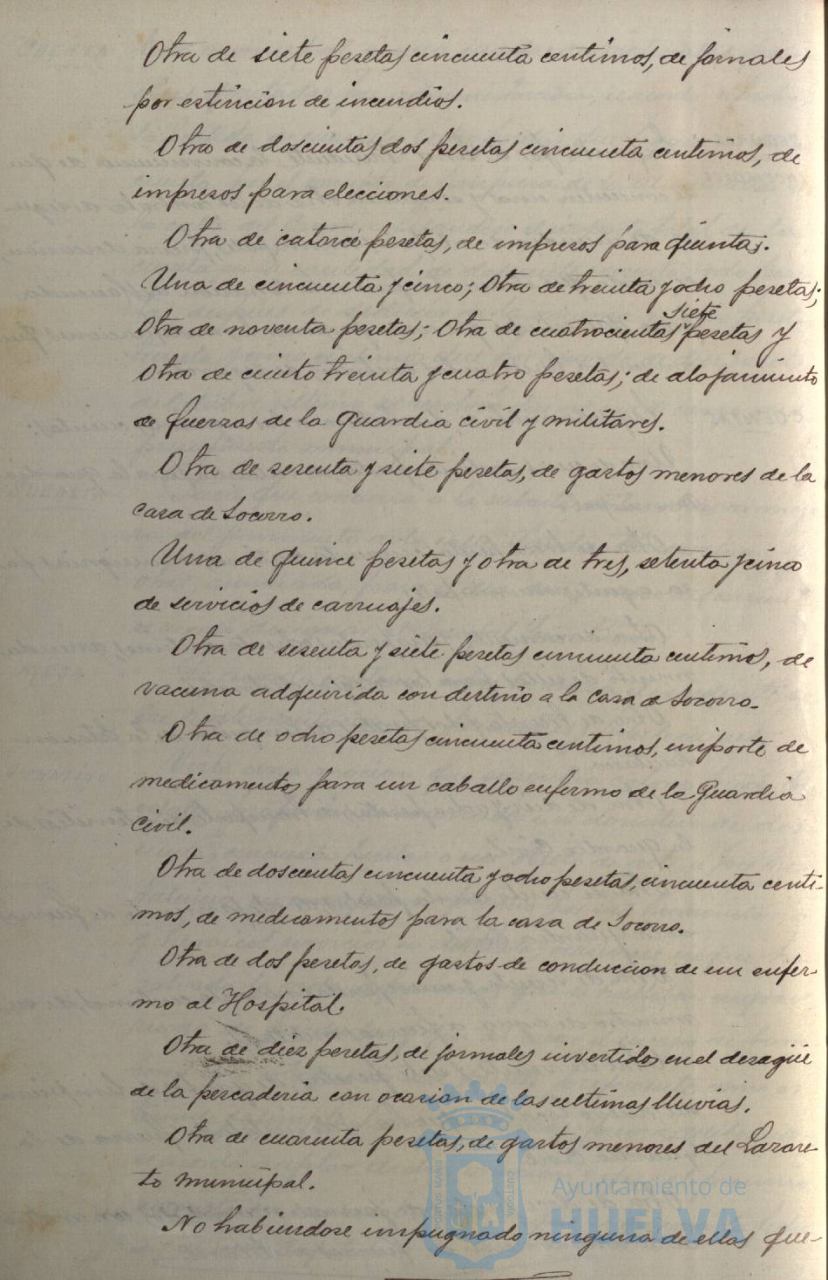 Otra de siete pesetas cincuenta centimos, de jornales
por estincion de incendios.
Otra de doscientas dos pesetas cincuenta centimos, de
impresos para elecciones.
Otra de catorce pesetas, de impresos para quintas.
Una de cincuenta y cinco; Otra de treinta y ocho pesetas;
siete
Otra de noventa pesetas; Otra de cuatrocientas pesetas y
Otra de ciento treinta y cuatro pesetas; de alojamiento
de fuerzas de la Guardia civil y militares.
Otra de sesenta y siete pesetas, de gastos menores de la
casa de Socorro.
Una de quince pesetas y otra de tres, setenta y cinco
de servicios de carruajes.
Otra de sesenta y siete pesetas cincuenta centimos, de
vacuna adquirida con destino a la Casa de Socorro.
Otra de ocho pesetas cincuenta centimos, importe de
medicamentos para un caballo enfermo de la Guardia
civil.
Otra de doscientas cincuenta y ocho pesetas, cincuenta centi-
mos, de medicamentos para la casa de Socorro.
Otra de dos pesetas, de gastos de conduccion de un enfer-
mo al Hospital.
Otra de diez pesetas, de jornales invertidos en el desagüe
de la pescaderia con ocasion de las ultimas lluvias.
Otra de cuarenta pesetas, de gastos menores del Lazare-
to municipal.
No habiendose impugnado ninguna de ellas que-
Ayuntamiento de
HUELVA